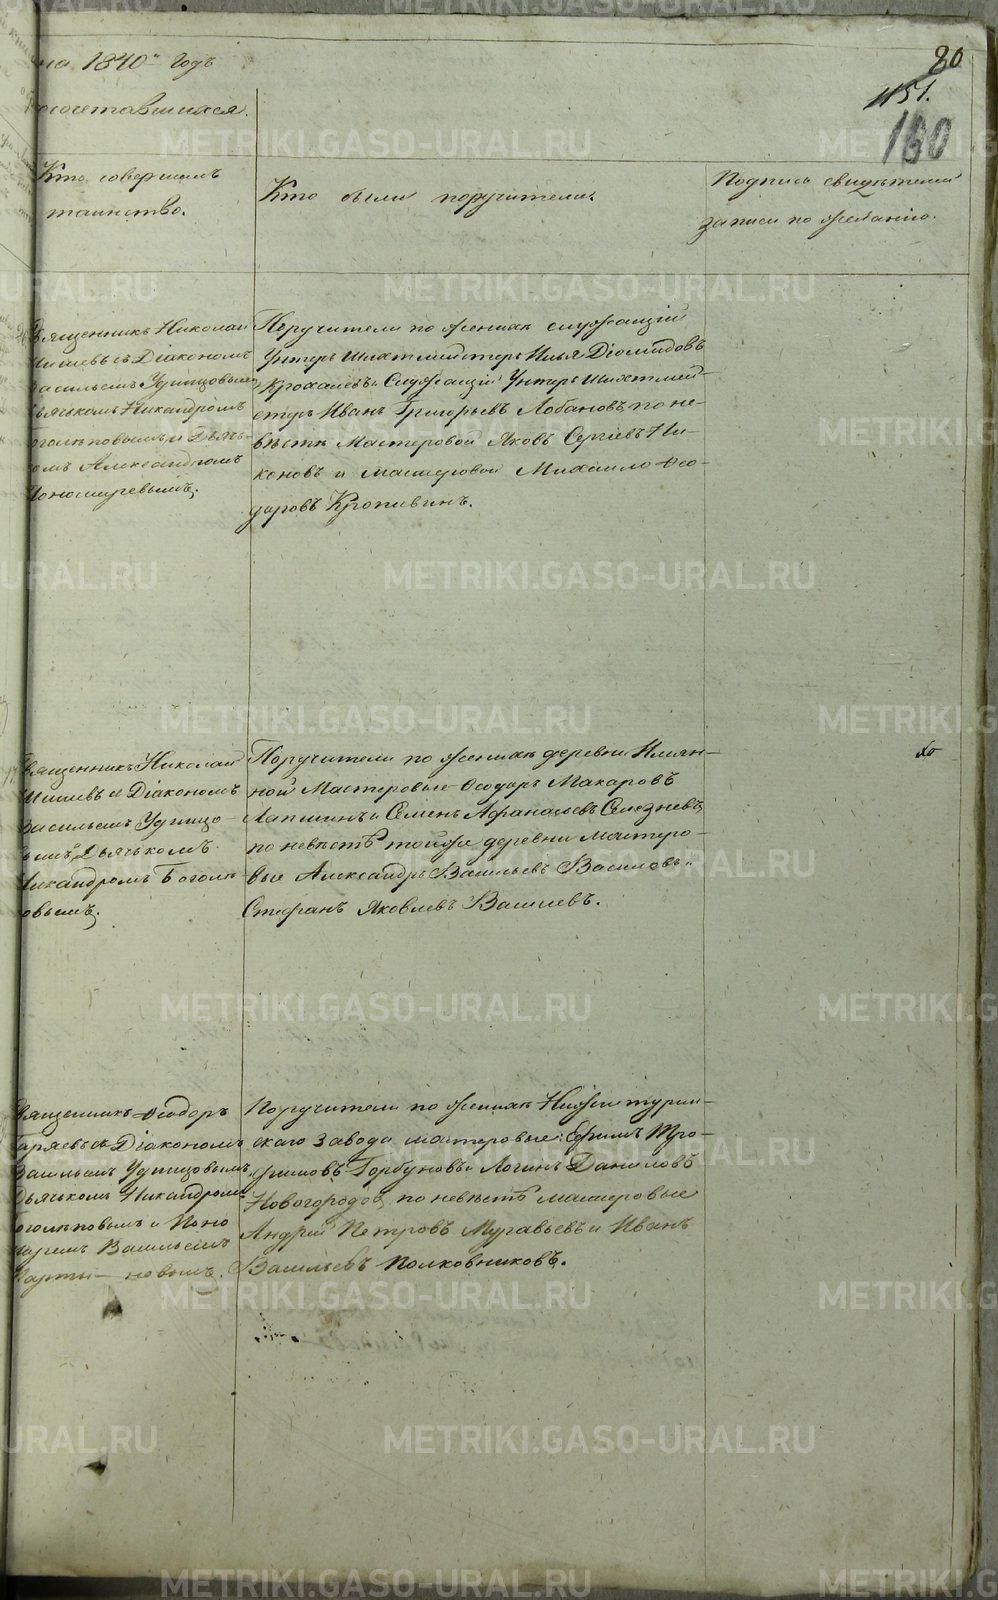 на 1840й годъ
80
1151.
160
Кто совершалъ
таинство.
Кто были поручители.
Подпись свидѣтелей
записи по желанію.
Священникъ Николай
Діакономъ
Василіемъ Удинцовымъ
Дьячкомъ Никандромъ
Боголѣповымъ и Дьяч-
комъ Александромъ
Пономаревымъ.
Поручители по женихѣ служащій
Унтеръ Шихтмейстеръ Илья Діомидовъ
Крохалевъ и Служащій Унтеръ Шихтмей-
стеръ Иванъ Григорьевъ Лобановъ, по не-
вѣстѣ Мастеровой Яковъ Сергѣевъ Ни-
коновъ и мастеровой Михайло Ѳео-
доровъ Кропивинъ.
Священникъ Николай
Діакономъ
Василіемъ Удинцо-
вымъ, Дьячькомъ
Никандромъ Боголѣ-
повымъ.
Поручители по женихѣ деревни Имян-
ной Мастеровые Ѳеодоръ Макаровъ
Лапшинъ и Семенъ Афанасьевъ Селезневъ,
по невѣстѣ тойже деревни мастеро-
вые Александръ Васильевъ Василовъ и
Стефанъ Яковлевъ Васильевъ.
Священникъ Ѳеодоръ
Діакономъ
Васильемъ Удинцовымъ,
Дьячькомъ Никандромъ
Боголѣповымъ и Поно
маремъ Васильемъ
Марты-новымъ.
Поручители по женихѣ Нижнетурин-
скаго завода мастеровые: Ефимъ Тро-
фимовъ Горбуновъ и Логинъ Даниловъ
Новогородов, по невѣстѣ мастеровые
Андрей Петровъ Муравьевъ и Иванъ
Васильевъ Полковниковъ.
METRIKI.GASO-URAL.RU